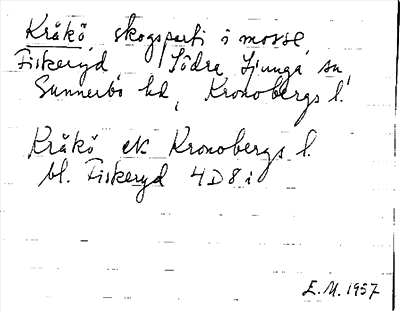 Kråkö, skogsparti i mosse,
Fiskeryd, Södra Ljunga sn,
Sunnerbo hd, Kronobergs l.
Kråkö ek Kronobergs l.
bl. Fiskeryd 4D8i
E.M. 1957